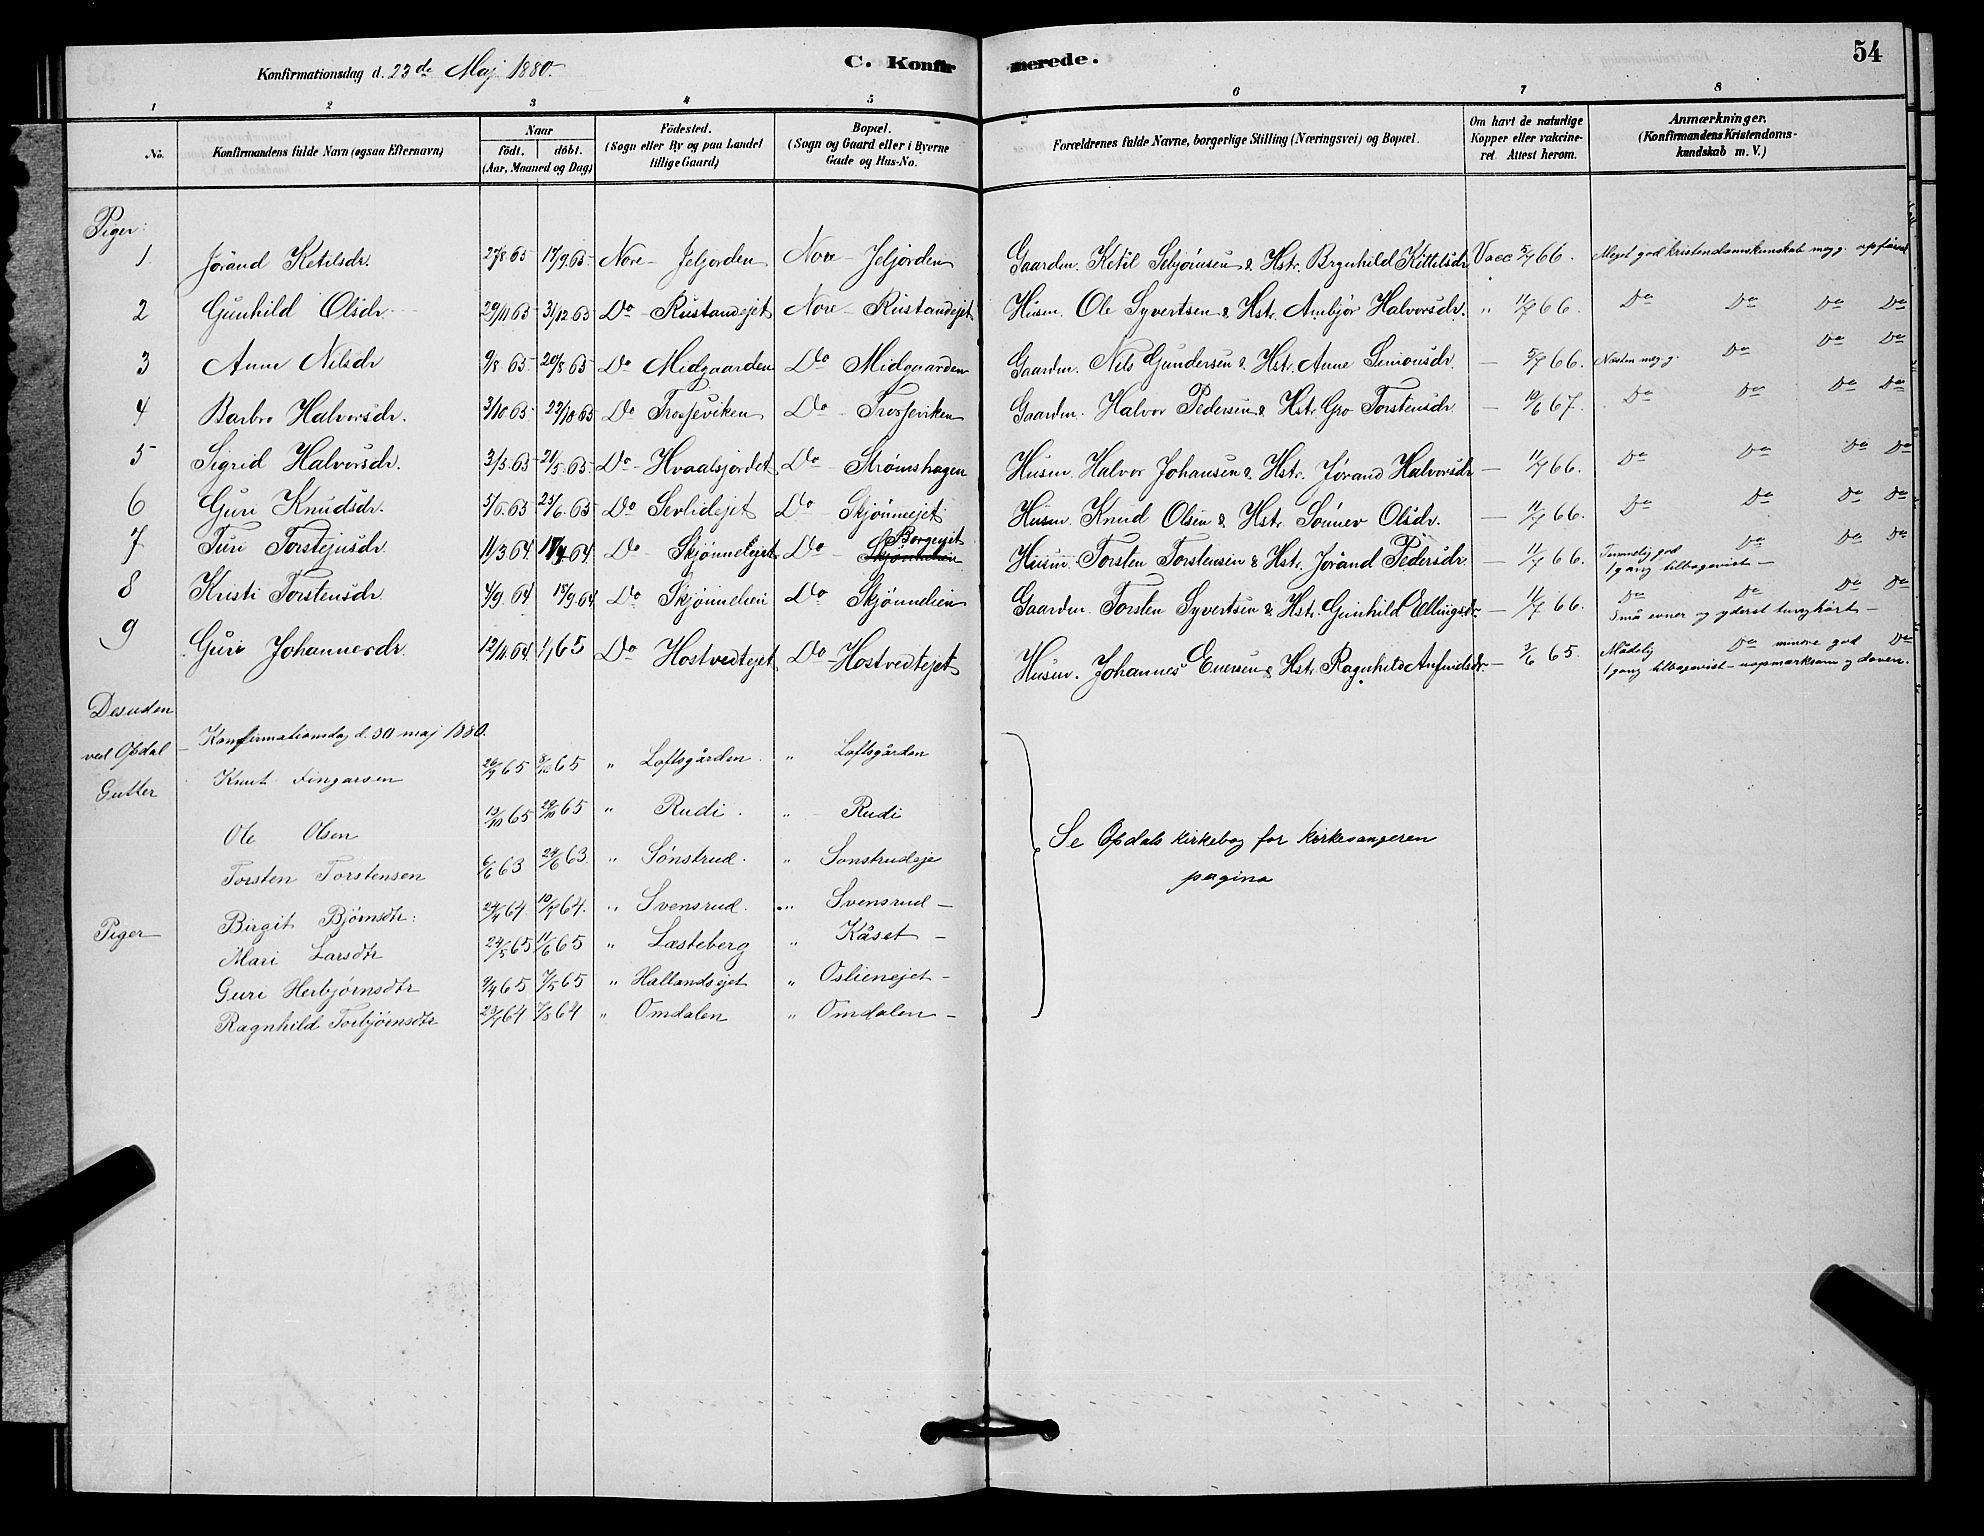 Konfirmationsdag d. 23de Maj 1880.
C. Konfirmerede.
54
1 2 3 4 5 6 7 8
No.
Konfirmandens fulde Navn (ogsaa Efternavn)
Naar
født, døbt.
(Aar, Maaned og Dag)
Födested.
(Sogn eller By og paa Landet
tillige Gaard)
Bopæl.
(Sogn og Gaard eller i Byerne
Gade og Hus-No.
Forældrenes fulde Navne, borgerlige Stilling (Næringsvei) og Bopæl.
Om havt de naturlige
Kopper eller vakcine-
ret. Attest herom.
Anmærkninger.
(Konfirmandens Kristendoms-
kundskab m. V.)
Piger:
1 Jørand Ketilsdr. 27/8 65 17/9 65 Nore - Jeljorden Nore - Jeljorden Gaarden. Ketil Sebjørnsen & Hstr. Brynhild Kittilsdr Vacc 5/7 66. Meget god kristendomskunskab meg g. opførsel
2 Gunhild Olsdr 29/11 65 31/12 65 Do - Rustandejet Nore - Rustandejet Husm. Ole Syvertsen & Hstr. Ambjør Halvorsdr. " 11/7 66. Do Do Do Do
3 Anne Nilsdr 9/8 65 20/8 65 Do Midgaarden Do Midgaarden Gaarden. Nils Gundersen & Hstr. Anne Simonsdr. - 5/7 66. Næsten meg. g. Do Do Do
4 Barbro Halvorsdr. 3/10 65 22/10 65 Do Trosjeviken Do - Trosjeviken Gaarden. Halvor Pedersen & Hstr. Gro Torstensdr. - 10/6 67. Do Do Do Do
5 Sigrid Halvorsdr. 3/5 65 21/5 65 Do - Hvaalsjordet Do - Strømshagen Husm. Halvor Johansen & Hstr. Jørand Halvorsdr - 11/7 66. Do Do Do Do
6 Guri Knudsdr. 3/6 65 25/6 65 Do Sevlidejet Do Skjønneejet Husm. Knud Olsen & Hstr. Sønnev Olsdr. - 11/7 66. Do Do Do Do
7 Turi Torstejnsdr 11/3 64 17/4 64. Do - Skjønneliejet Do - Borgejet Husm. Torsten Torstensen & Hstr. Jørand Pedersdr. - 11/7 66. Temmelig god Do Do Do
1 gang tilbagevist -
8 Kristi Torstensdr 4/9 64 18/9 64 Do Skjønnelien Do Skjønnelien Gaarden. Torsten Syvertsen & Hstr. Gunhild Ellingsdr. - 11/7 66. Do Do Do Do
Små evner og yderst tunghørt -
9 Guri Johannesdr. 12/11 64 1/1 65 Do Hostvedtejet Do - Hostvedtejet Husm. Johannes Enersen & Hstr. Ragnhild Anfindsdr - 3/6 65. Mådelig Do mindre god Do
1 gang tilbagevist - uopmærksom og doven.
Desuden
ved Opdal - Konfirmationsdag d. 30 maj 1880.
Gutter Knut Fingarsen 26/9 65 8/10 65 " Loftsgården. " Loftsgården
Ole Olsen 13/10 65 29/10 65 " Rudi. " Rudi
Torsten Torstensen 6/6 63 24/6 63. " Sønstrud. " Sønstrudeje
Piger Birgit Bjørnsdtr: 24/4 64 10/7 64. " Svensrud. " Svensrud -
Mari Larsdtr 24/5 65 11/6 65 " Læsteberg " Kåset -
Guri Herbjørnsdtr 9/4 65 7/5 65 " Hallandsejet " Oslienejet -
Ragnhild Torbjørnsdtr 23/7 64 7/8 64 " Omdalen " Omdalen -
Se Opdals kirkebog for kirkesangeren
pagina